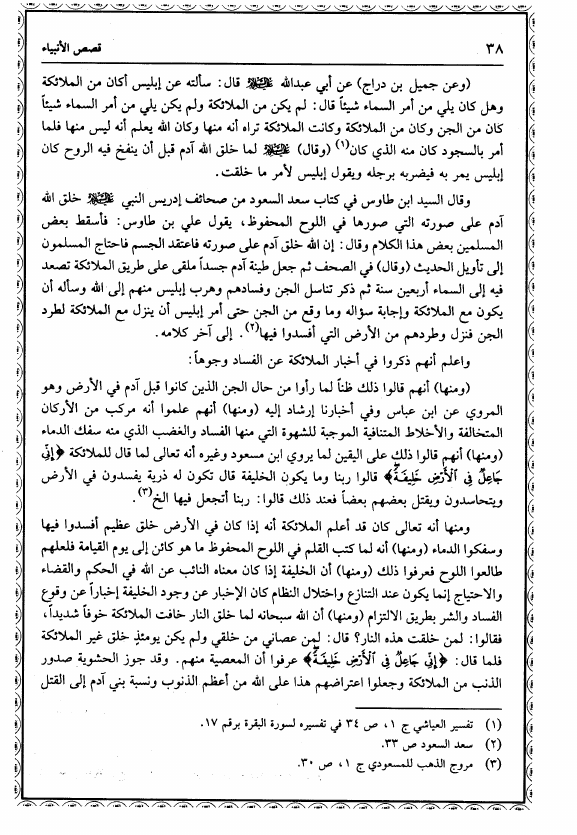 ٣٨
قصص الأنبياء
(وعن جميل بن دراج) عن أبي عبدالله عليه السلام قال: سألته عن إبليس أكان من الملائكة
وهل كان يلي من أمر السماء شيئاً قال: لم يكن من الملائكة ولم يكن يلي من أمر السماء شيئاً
كان من الجن وكان من الملائكة وكانت الملائكة تراه أنه منها وكان الله يعلم أنه ليس منها فلما
أمر بالسجود كان منه الذي كان(١) (وقال) عليه السلام لما خلق الله آدم قبل أن ينفخ فيه الروح كان
إبليس يمر به فيضربه برجله ويقول إبليس لأمر ما خلقت.
وقال السيد ابن طاوس في كتاب سعد السعود من صحائف إدريس النبي عليه السلام خلق الله
آدم على صورته التي صورها في اللوح المحفوظ، يقول علي بن طاوس: فأسقط بعض
المسلمين بعض هذا الكلام وقال: إن الله خلق آدم على صورته فاعتقد الجسم فاحتاج المسلمون
إلى تأويل الحديث (وقال) في الصحف ثم جعل طينة آدم جسداً ملقى على طريق الملائكة تصعد
فيه إلى السماء أربعين سنة ثم ذكر تناسل الجن وفسادهم وهرب إبليس منهم إلى الله وسأله أن
يكون مع الملائكة وإجابة سؤاله وما وقع من الجن حتى أمر إبليس أن ينزل مع الملائكة لطرد
الجن فنزل وطردهم من الأرض التي أفسدوا فيها(٢). إلى آخر كلامه.
واعلم أنهم ذكروا في أخبار الملائكة عن الفساد وجوهاً:
(ومنها) أنهم قالوا ذلك ظناً لما رأوا من حال الجن الذين كانوا قبل آدم في الأرض وهو
المروي عن ابن عباس وفي أخبارنا إرشاد إليه (ومنها) أنهم علموا أنه مركب من الأركان
المتخالفة والأخلاط المتنافية الموجبة للشهوة التي منها الفساد والغضب الذي منه سفك الدماء
(ومنها) أنهم قالوا ذلك على اليقين لما يروي ابن مسعود وغيره أنه تعالى لما قال للملائكة ﴿إِنِّي
جَاعِلٌ فِي ٱلْأَرْضِ خَلِيفَةً﴾ قالوا ربنا وما يكون الخليفة قال تكون له ذرية يفسدون في الأرض
ويتحاسدون ويقتل بعضهم بعضاً فعند ذلك قالوا: ربنا أتجعل فيها الخ(٣).
ومنها أنه تعالى كان قد أعلم الملائكة أنه إذا كان في الأرض خلق عظيم أفسدوا فيها
وسفكوا الدماء (ومنها) أنه لما كتب القلم في اللوح المحفوظ ما هو كائن إلى يوم القيامة فلعلهم
طالعوا اللوح فعرفوا ذلك (ومنها) أن الخليفة إذا كان معناه النائب عن الله في الحكم والقضاء
والاحتياج إنما يكون عند التنازع واختلال النظام كان الإخبار عن وجود الخليفة إخباراً عن وقوع
الفساد والشر بطريق الالتزام (ومنها) أن الله سبحانه لما خلق النار خافت الملائكة خوفاً شديداً،
فقالوا: لمن خلقت هذه النار؟ قال: لمن عصاني من خلقي ولم يكن يومئذٍ خلق غير الملائكة
فلما قال: ﴿إِنِّي جَاعِلٌ فِي ٱلْأَرْضِ خَلِيفَةً﴾ عرفوا أن المعصية منهم. وقد جوز الحشوية صدور
الذنب من الملائكة وجعلوا اعتراضهم هذا على الله من أعظم الذنوب ونسبة بني آدم إلى القتل
(١) تفسير العياشي ج ١، ص ٣٤ في تفسيره لسورة البقرة برقم ١٧.
(٢) سعد السعود ص ٣٣.
(٣) مروج الذهب للمسعودي ج ١، ص ٣٠.